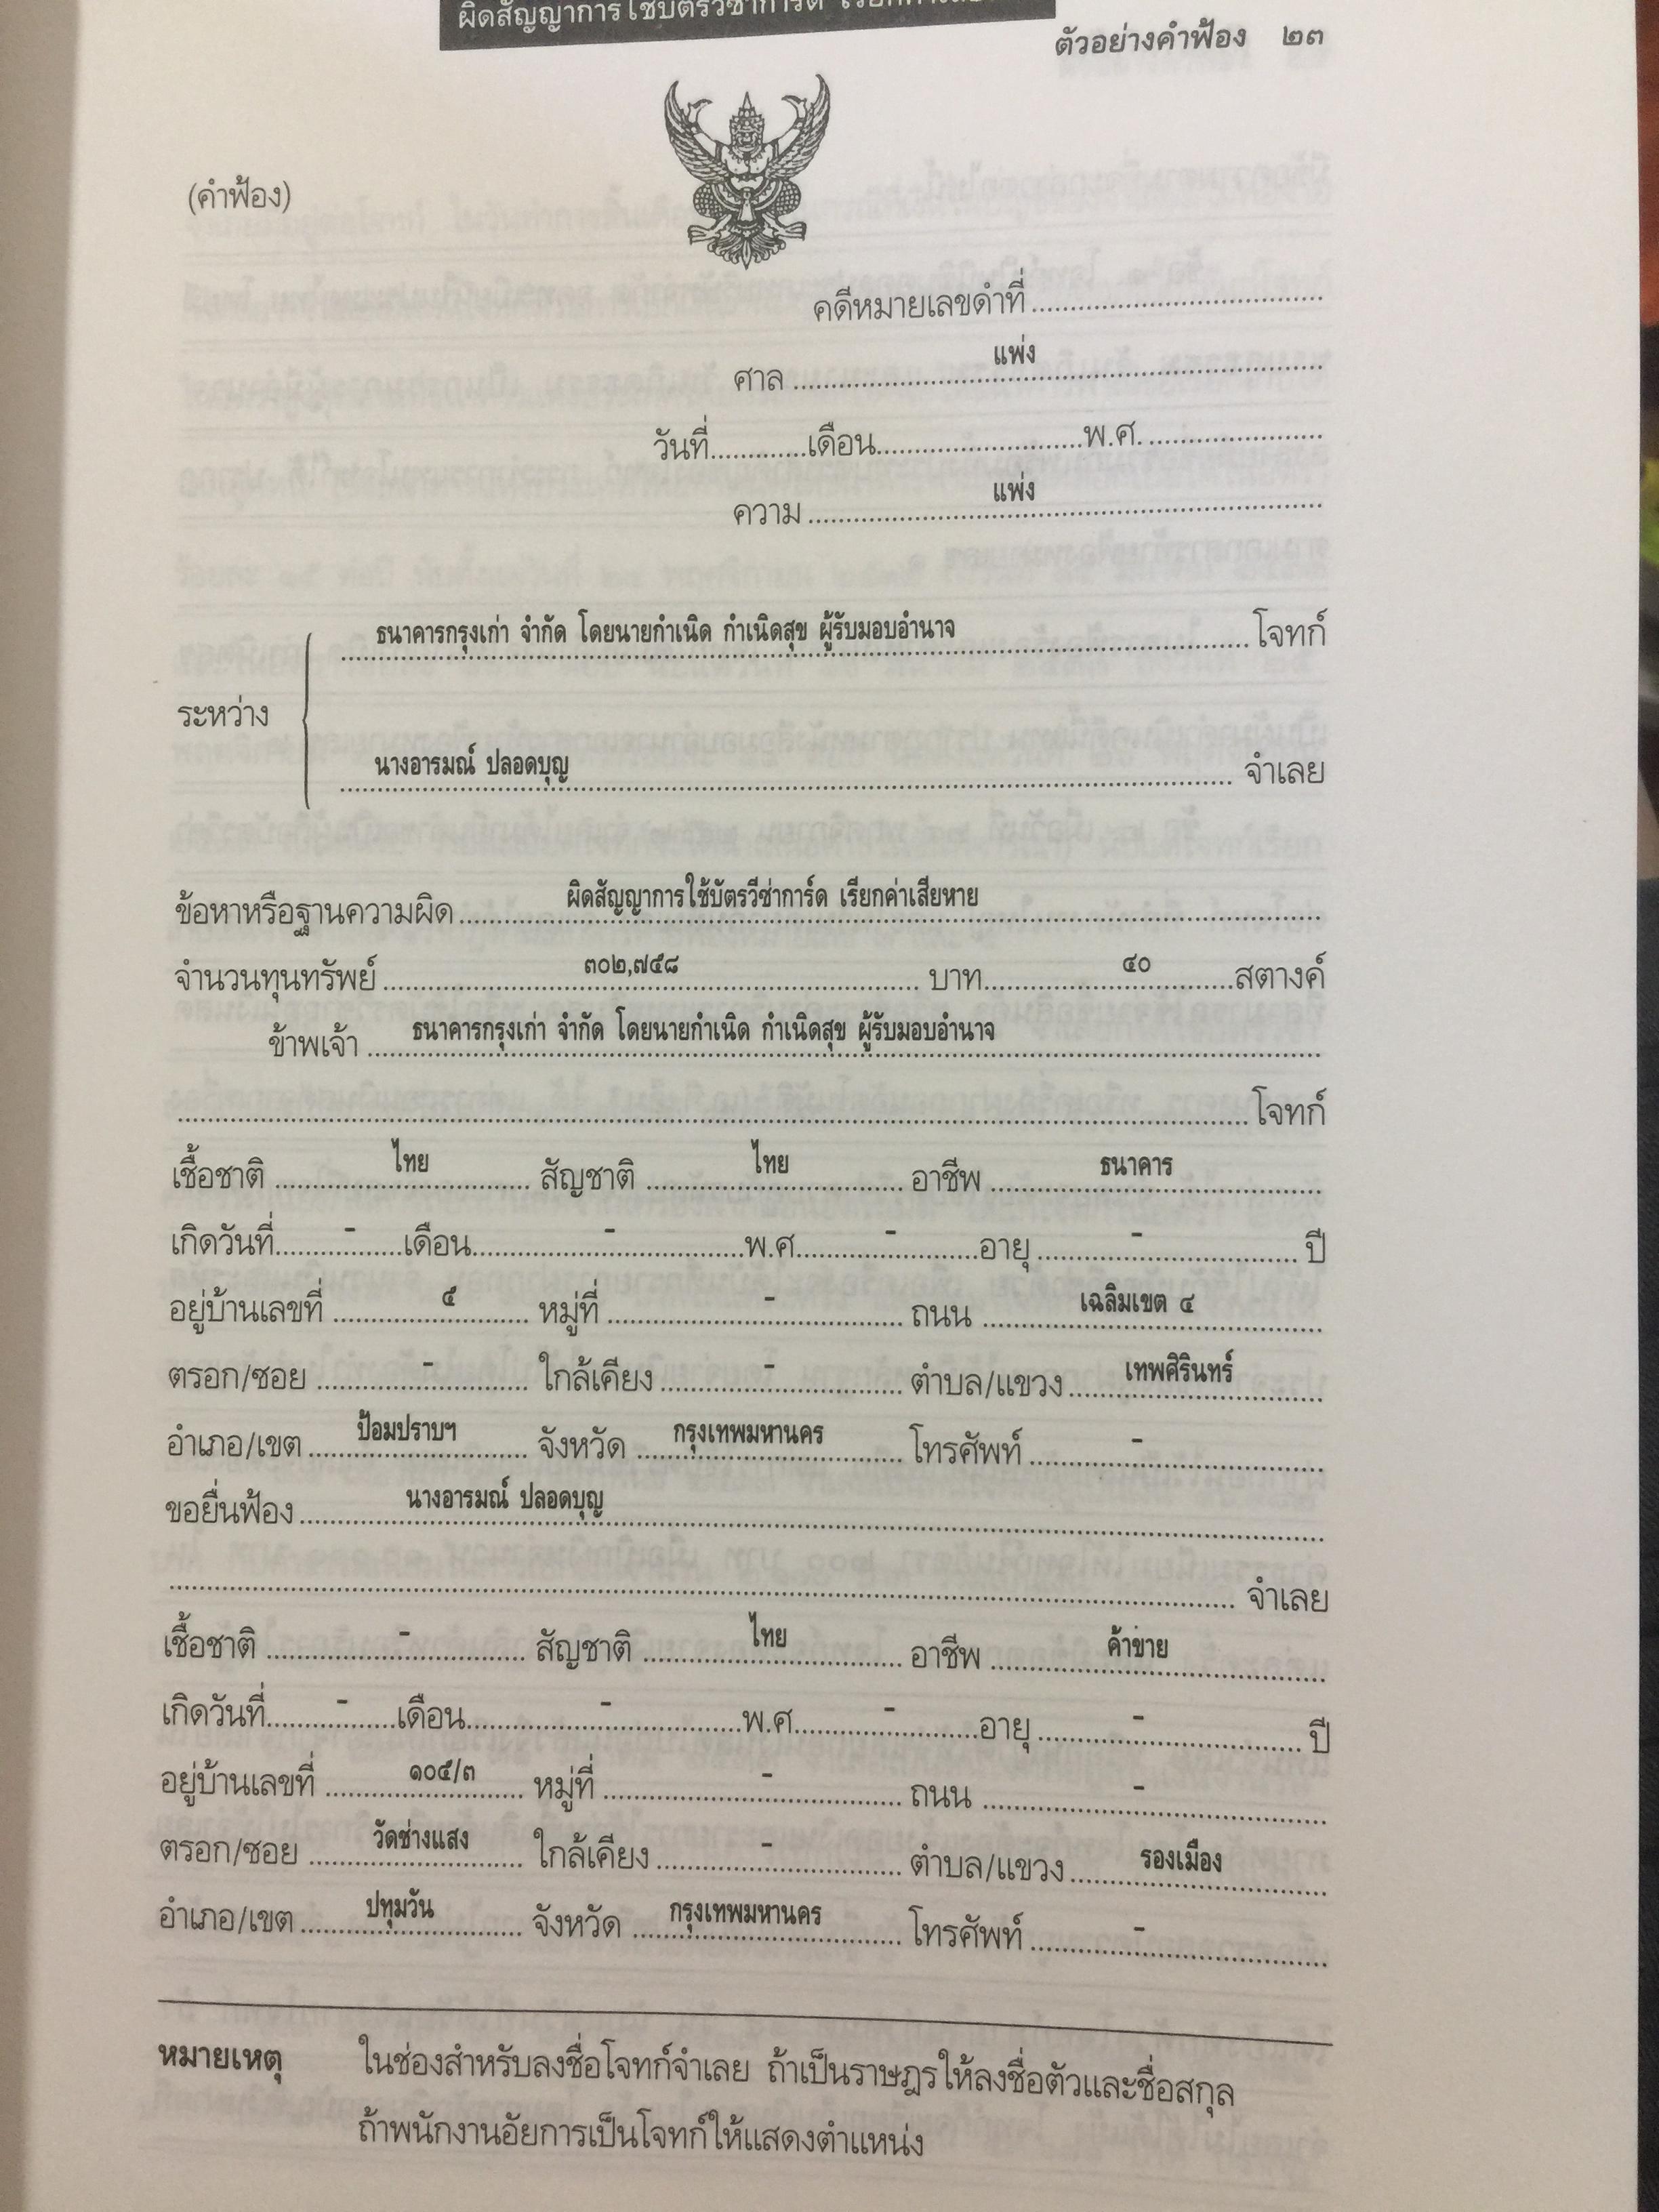 ผิดสัญญาการใช้บัตรวีซ่าการ์ด
ตัวอย่างคำฟ้อง ๒๓
(คำฟ้อง)
คดีหมายเลขดำที่
ศาล แพ่ง
วันที่ เดือน พ.ศ.
ความ แพ่ง
ธนาคารกรุงเก่า จำกัด โดยนายกำเนิด กำเนิดสุข ผู้รับมอบอำนาจ โจทก์
ระหว่าง
นางอารมณ์ ปลอดบุญ จำเลย
ข้อหาหรือฐานความผิด ผิดสัญญาการใช้บัตรวีซ่าการ์ด เรียกค่าเสียหาย
จำนวนทุนทรัพย์ ๓๐๒,๗๕๘ บาท ๔๐ สตางค์
ข้าพเจ้า ธนาคารกรุงเก่า จำกัด โดยนายกำเนิด กำเนิดสุข ผู้รับมอบอำนาจ
โจทก์
เชื้อชาติ ไทย สัญชาติ ไทย อาชีพ ธนาคาร
เกิดวันที่ - เดือน - พ.ศ. - อายุ - ปี
อยู่บ้านเลขที่ ๕ หมู่ที่ - ถนน เฉลิมเขต ๔
ตรอก/ซอย - ใกล้เคียง - ตำบล/แขวง เทพศิรินทร์
อำเภอ/เขต ป้อมปราบฯ จังหวัด กรุงเทพมหานคร โทรศัพท์ -
ขอยื่นฟ้อง นางอารมณ์ ปลอดบุญ
จำเลย
เชื้อชาติ - สัญชาติ ไทย อาชีพ ค้าขาย
เกิดวันที่ - เดือน - พ.ศ. - อายุ - ปี
อยู่บ้านเลขที่ ๑๐๕/๓ หมู่ที่ - ถนน -
ตรอก/ซอย วัดช่างแสง ใกล้เคียง - ตำบล/แขวง รองเมือง
อำเภอ/เขต ปทุมวัน จังหวัด กรุงเทพมหานคร โทรศัพท์ -
หมายเหตุ ในช่องสำหรับลงชื่อโจทก์จำเลย ถ้าเป็นราษฎรให้ลงชื่อตัวและชื่อสกุล
ถ้าพนักงานอัยการเป็นโจทก์ให้แสดงตำแหน่ง